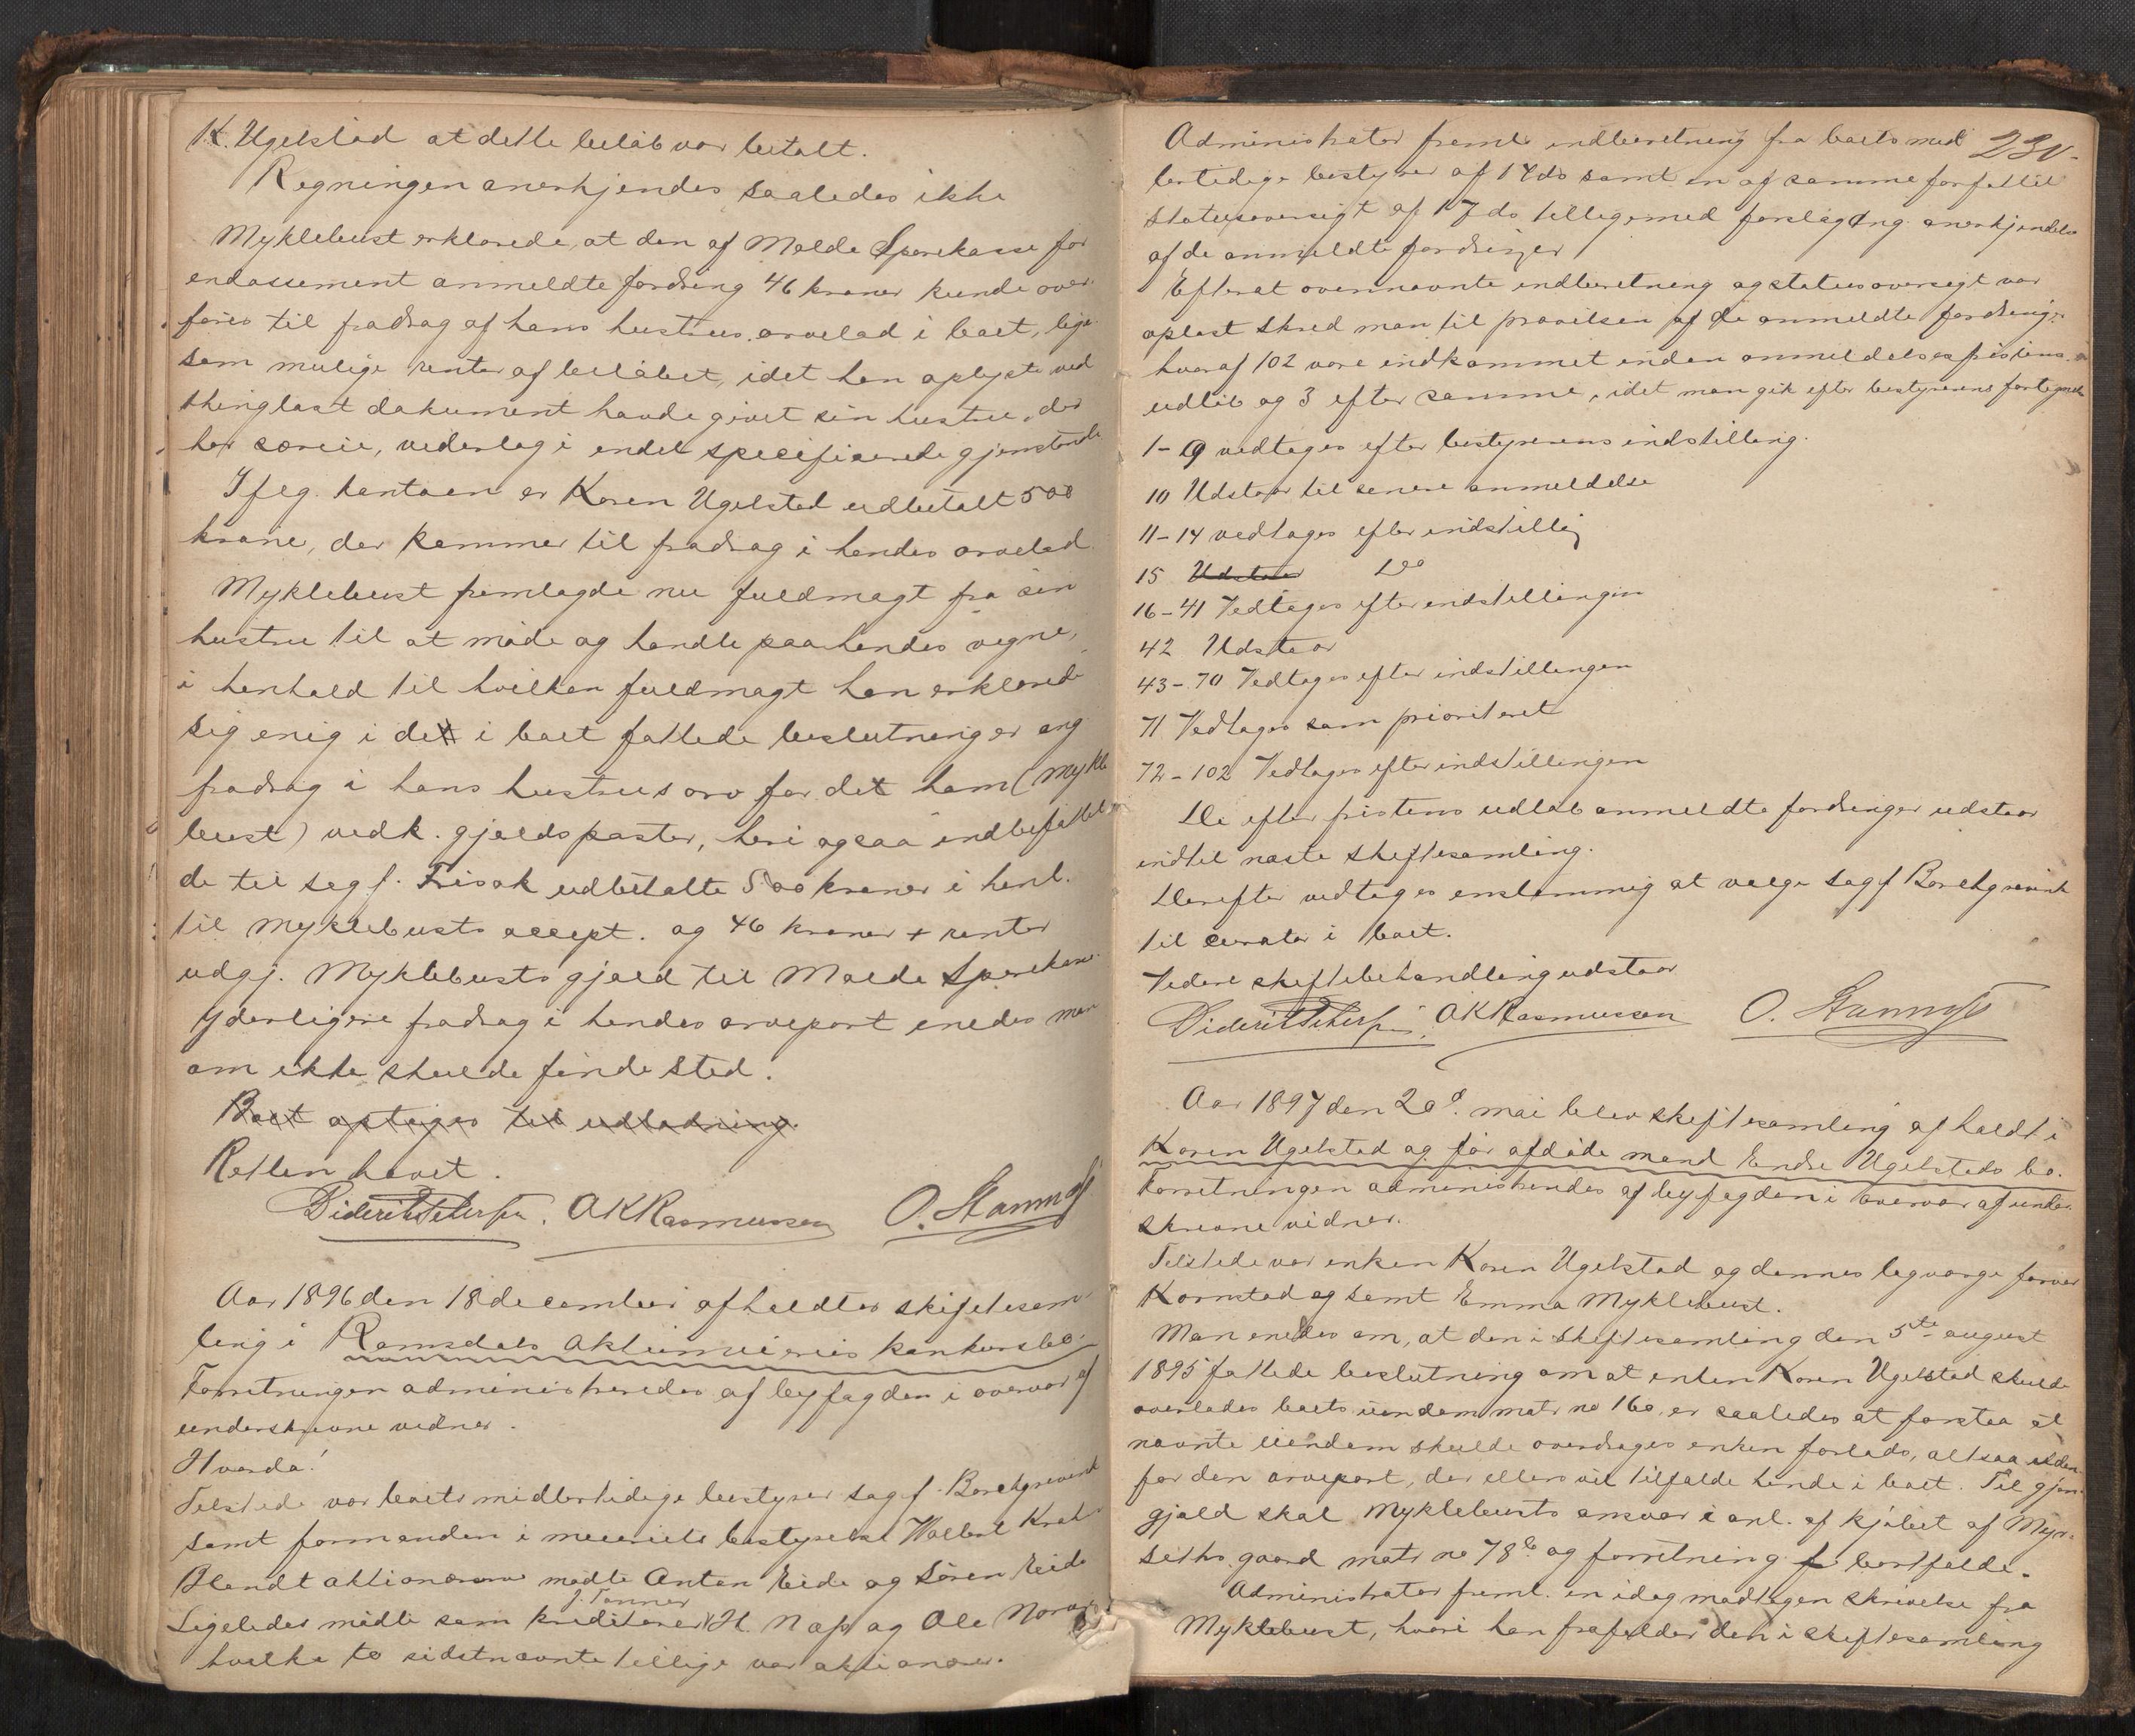 K. Ugelstad at dette beløb var betalt.
Regningen anerkjendes saaledes ikke
Myklebust erklærede, at den af Molde Sparekasse for
endossement anmeldte fordring 46 kroner kunde over-
føres til fradrag af hans hustrus arvelod i boet, lige-
som mulige renter af beløbet, idet han oplyste ved
thinglæst dokument havde givet sin hustru, der
har særeie, vederlag i endel specificerede gjenstande
Iflg. kontoen er Karen Ugelstad udbetalt 500
krone, der kommer til fradrag i hendes arvelod.
Myklebust fremlagde nu fuldmagt fra sin
hustru til at møde og handle paa hendes vegne,
i henhold til hvilken fuldmagt han erklærede
sig enig i de i boet fattede beslutninger ang
fradrag i hans hustrus arv for det ham (Mykle
bust) vedk. gjeldsposter, heri ogsaa indbefattet
de til sagf. Frisak udbetalte 500 kroner i henh.
til Myklebusts accept. og 46 kroner + renter
udgj. Myklebusts gjæld til Molde Sparekasse.
Yderligere fradrag i hendes arvepart enedes man
om ikke skulde finde sted.
Boet optages til udlodning.
Retten hævet.
Diderik Petersen. O K Rasmussen O. Stamnes
Aar 1896 den 18 december afholdtes skiftesam-
ling i Romsdals Aktiemeieries konkursbo.
Forretningen administreredes af byfogden i overvær af
underskrevne vidner.
Hvorda!
Tilstede var boets midlertidige bestyrer sagf. Borchgrevink
samt formanden i meieriets bestyrelse
Blandt aktionærerne mødte Anton Eide og Søren Eide
J. Tønner
Ligeledes mødte som kreditorer H. og Ole
hvilke to sidstnævnte tillige var aktionærer.
Administrator freml. indberetning fra boets mid 230.
lertidige bestyrer af 17 ds samt en af samme forfattet
statusoversigt af 17 ds tilligemed forslag ang. anerkjendelse
af de anmeldte fordringer
Efterat ovennævnte indberetning og statusoversigt var
oplæst skred man til prøvelsen af de anmeldte fordringer
hvoraf 102 vare indkommet inden anmeldelsesfristens
udløb og 3 efter samme, idet man gik efter bestyrerens fortegnelse
1-9 vedtages efter bestyrerens indstilling.
10 Udstaar til senere anmeldelse
11-14 vedtages efter indstillig
15 Udstaar Do
16-41 Vedtages efter indstillingen
42 Udstaar
43-70 Vedtages efter indstillingen
71 Vedtages som prioriteret
72-102 Vedtages efter indstillingen
De efter fristens udløb anmeldte fordringer udstaar
indtil næste skiftesamling.
Derefter vedtages enstemmig at vælge sagf Borchgrevink
til curator i boet.
Videre skiftebehandling udstaar
Diderik Petersen. O K Rasmussen O. Stamnes
Aar 1897 den 20d. mai blev skiftesamling afholdt i
Karen Ugelstad og før afdøde mand Endre Ugelstads bo.
Forretningen administreredes af byfogden i overvær af under-
skrevne vidner.
Tilstede var enken Karen Ugelstad og dennes lagværge
Kornstad og samt Emma Myklebust.
Man enedes om, at den i skiftesamling den 5te august
1895 fattede beslutning om at enken Karen Ugelstad skulde
overlades boets iendom matr no 160, er saaledes at forstaa at
nævnte eiendom skulde overdrages enken forlods, altsaa uden
for den arvepart, der ellers vil tilfalde hende i boet. Til gjen-
gjæld skal Myklebusts ansvar i anl. af kjøbet af
gaard matr no 78b og forretning bortfalde.
Administrator freml. en idag modtagen skrivelse fra
Myklebust, hvori han frafalder den i skiftesamling